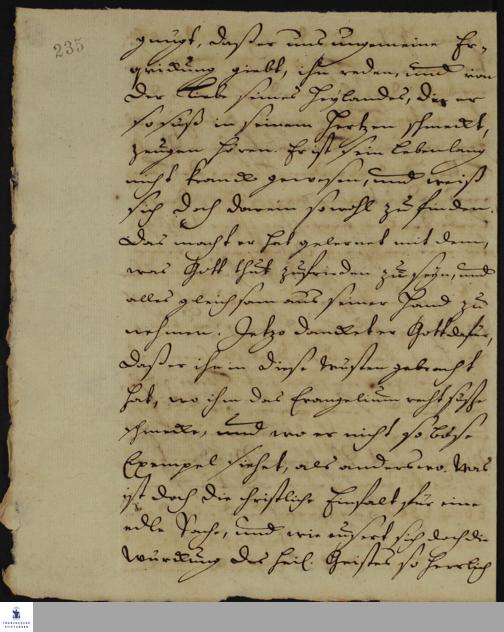 235
gnügt, daß er uns ungemeine Er-
quickung giebt, ihn reden, und von
der Liebe seines Heylandes, die er
so süß in seinem Hertzen schmeckt,
zeugen hören. Er ist sein lebenlang
nicht kranck gewesen, und weiß
sich doch darein so wohl zu finden.
Das macht er hat gelernet mit dem,
was Gott thut zufrieden zu seyn, und
alles gleichsam aus seiner Hand zu
nehmen. Jetzo dancket er Gott dafür,
daß er ihn in diese Wüsten gebracht
hat, wo ihm das Evangelium recht süße
schmecke, und wo er nicht so böse
Exempel siehet, als anderswo. Was
ist doch die christliche Einfalt für eine
edle Sache, und wie äusert sich doch die
Würckung des heil. Geistes so herrlich
FRANCKESCHE
STIFTUNGEN